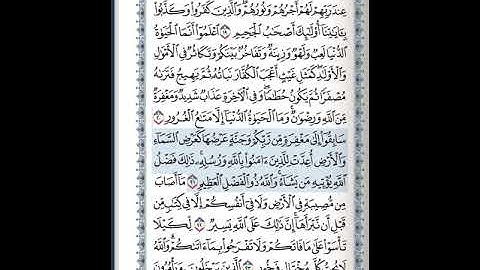 عِندَ رَبِّهِمْ لَهُمْ أَجْرُهُمْ وَنُورُهُمْ ۖ وَالَّذِينَ كَفَرُوا وَكَذَّبُوا
بِـَٔايَـٰتِنَآ أُو۟لَـٰٓئِكَ أَصْحَـٰبُ ٱلْجَحِيمِ ١٩ ٱعْلَمُوٓا۟ أَنَّمَا ٱلْحَيَوٰةُ
ٱلدُّنْيَا لَعِبٌ وَلَهْوٌ وَزِينَةٌ وَتَفَاخُرٌۢ بَيْنَكُمْ وَتَكَاثُرٌ فِى ٱلْأَمْوَٰلِ
وَٱلْأَوْلَـٰدِ ۖ كَمَثَلِ غَيْثٍ أَعْجَبَ ٱلْكُفَّارَ نَبَاتُهُۥ ثُمَّ يَهِيجُ فَتَرَىٰهُ
مُصْفَرًّا ثُمَّ يَكُونُ حُطَـٰمًا ۖ وَفِى ٱلْـَٔاخِرَةِ عَذَابٌ شَدِيدٌ وَمَغْفِرَةٌ
مِّنَ ٱللَّهِ وَرِضْوَٰنٌ ۚ وَمَا ٱلْحَيَوٰةُ ٱلدُّنْيَآ إِلَّا مَتَـٰعُ ٱلْغُرُورِ ٢٠
سَابِقُوٓا۟ إِلَىٰ مَغْفِرَةٍ مِّن رَّبِّكُمْ وَجَنَّةٍ عَرْضُهَا كَعَرْضِ ٱلسَّمَآءِ
وَٱلْأَرْضِ أُعِدَّتْ لِلَّذِينَ ءَامَنُوا۟ بِٱللَّهِ وَرُسُلِهِۦ ۚ ذَٰلِكَ فَضْلُ
ٱللَّهِ يُؤْتِيهِ مَن يَشَآءُ ۚ وَٱللَّهُ ذُو ٱلْفَضْلِ ٱلْعَظِيمِ ٢١ مَآ أَصَابَ
مِن مُّصِيبَةٍ فِى ٱلْأَرْضِ وَلَا فِىٓ أَنفُسِكُمْ إِلَّا فِى كِتَـٰبٍ مِّن
قَبْلِ أَن نَّبْرَأَهَآ ۚ إِنَّ ذَٰلِكَ عَلَى ٱللَّهِ يَسِيرٌ ٢٢ لِّكَيْلَا
تَأْسَوْا۟ عَلَىٰ مَا فَاتَكُمْ وَلَا تَفْرَحُوا۟ بِمَآ ءَاتَىٰكُمْ ۗ وَٱللَّهُ
لَا يُحِبُّ كُلَّ مُخْتَالٍ فَخُورٍ ٢٣ ٱلَّذِينَ يَبْخَلُونَ وَيَأْمُرُونَ